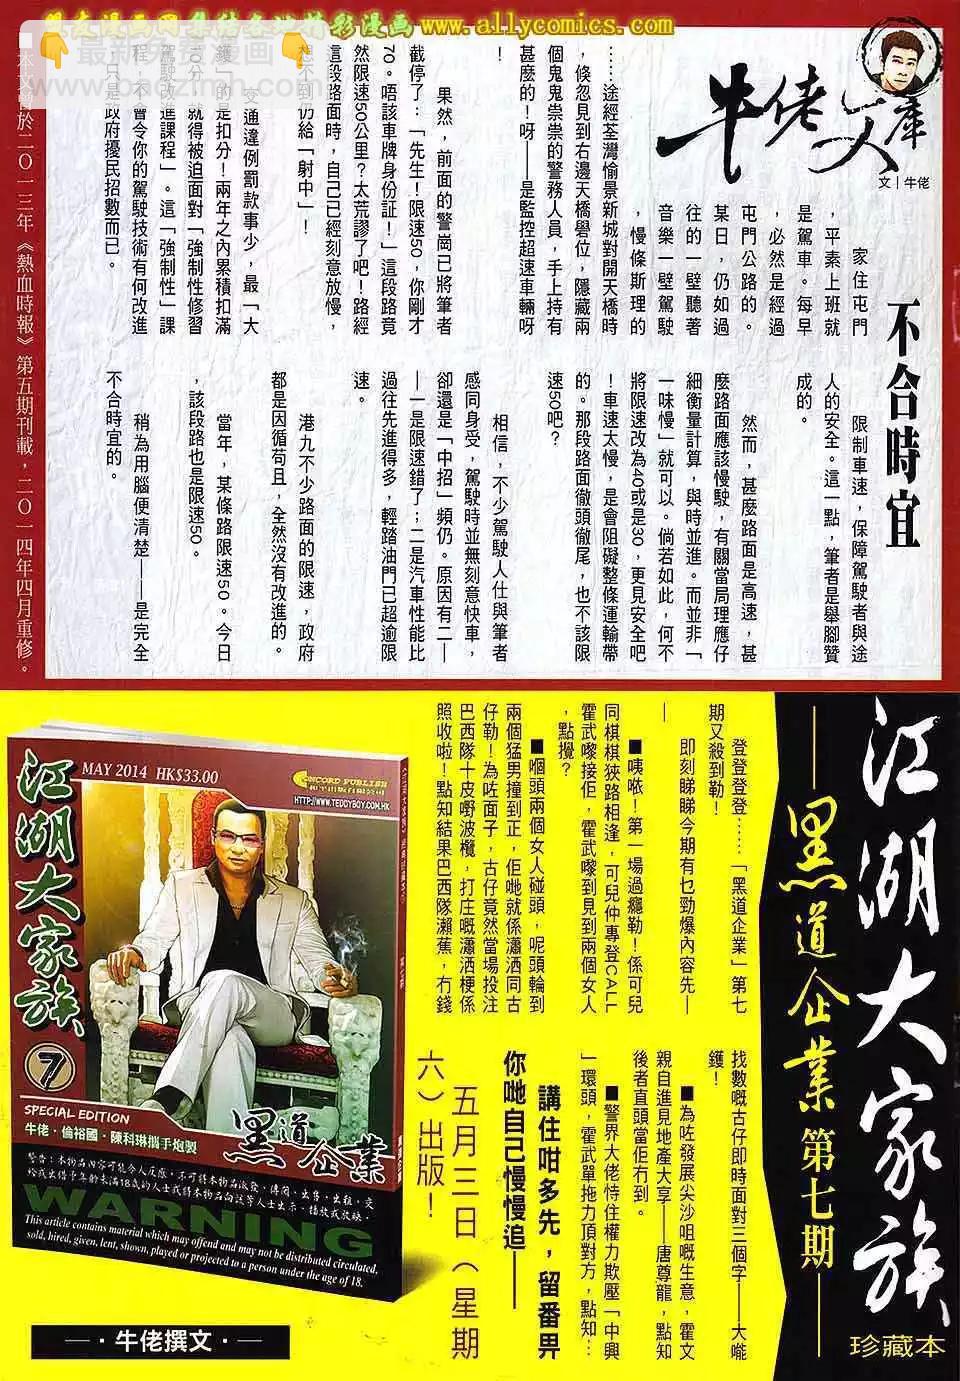 www.allycomics.com
牛佬文庫
文｜牛佬
不合時宜
家住屯門
，平素上班就
是駕車。每早
，必然是經過
屯門公路的。
某日，仍如過
往的一壁聽著
音樂一壁駕駛
，慢條斯理的
……途經荃灣愉景新城對開天橋時
，倏忽見到右邊天橋礐位，隱藏兩
個鬼鬼祟祟的警務人員，手上持有
甚麼的！呀——是監控超速車輛呀
！
果然，前面的警崗已將筆者
截停了：「先生！限速50，你剛才
70。唔該車牌身份証！」這段路竟
然限速50公里？太荒謬了吧！路經
這段路面時，自己已經刻意放慢，
想不到仍給「射中」！
交通違例罰款事少，最「大
鑊」的是扣分！兩年之內累積扣滿
10分，就得被迫面對「強制性修習
駕駛改進課程」。這「強制性」課
程，不會令你的駕駛技術有何改進
，只是政府擾民招數而已。
限制車速，保障駕駛者與途
人的安全。這一點，筆者是舉腳贊
成的。
然而，甚麼路面是高速，甚
麼路面應該慢駛，有關當局理應仔
細衡量計算，與時並進。而並非「
一味慢」就可以。倘若如此，何不
將限速改為40或是30，更見安全吧
！車速太慢，是會阻礙整條運輸帶
的。那段路面徹頭徹尾，也不該限
速50吧？
相信，不少駕駛人仕與筆者
感同身受，駕駛時並無刻意快車，
卻還是「中招」頻仍。原因有二—
—一是限速錯了；二是汽車性能比
過往先進得多，輕踏油門已超逾限
速。
港九不少路面的限速，政府
都是因循苟且，全然沒有改進的。
當年，某條路限速50。今日
，該段路也是限速50。
稍為用腦便清楚——是完全
不合時宜的。
本文曾於二〇一三年《熱血時報》第五期刊載，二〇一四年四月重修。
江湖大家族
珍藏本
——黑道企業第七期——
登登登登……「黑道企業」第七
期又殺到勒！
即刻睇睇今期有乜勁爆內容先—
—
■咦哝！第一場過癮勒！係可兒
同棋棋狹路相逢，可兒仲專登CALL
霍武嚟接佢，霍武嚟到見到兩個女人
，點攪？
■嗰頭兩個女人碰頭，呢頭輪到
兩個猛男撞到正，佢哋就係瀟洒同古
仔勒！為咗面子，古仔竟然當場投注
巴西隊十皮嘢波欖，打庄嘅瀟洒梗係
照收啦！點知結果巴西隊瀨蕉，冇錢
找數嘅古仔即時面對三個字——大喼
鑊！
■為咗發展尖沙咀嘅生意，霍文
親自進見地產大享——唐尊龍，點知
後者直頭當佢冇到。
■警界大佬恃住權力欺壓「中興
」環頭，霍武單拖力頂對方，點知…
講住咁多先，留番畀
你哋自己慢慢追——
五月三日（星期
六）出版！
MAY 2014 HK$33.00
CONCORD PUBLISH
HTTP://WWW.TEDDYBOY.COM.HK
江湖大家族
7
SPECIAL EDITION
牛佬・倫裕國・陳科琳攜手炮製
黑道企業
警告：本物品內容可能令人反感，不可將本物品派發、傳閱、出售、出租、交
給或出借予年齡未滿18歲的人士或將本物品向該等人士出示、播放或放映。
WARNING
This article contains material which may offend and may not be distributed circulated,
sold, hired, given, lent, shown, played or projected to a person under the age of 18.
—・牛佬撰文・—